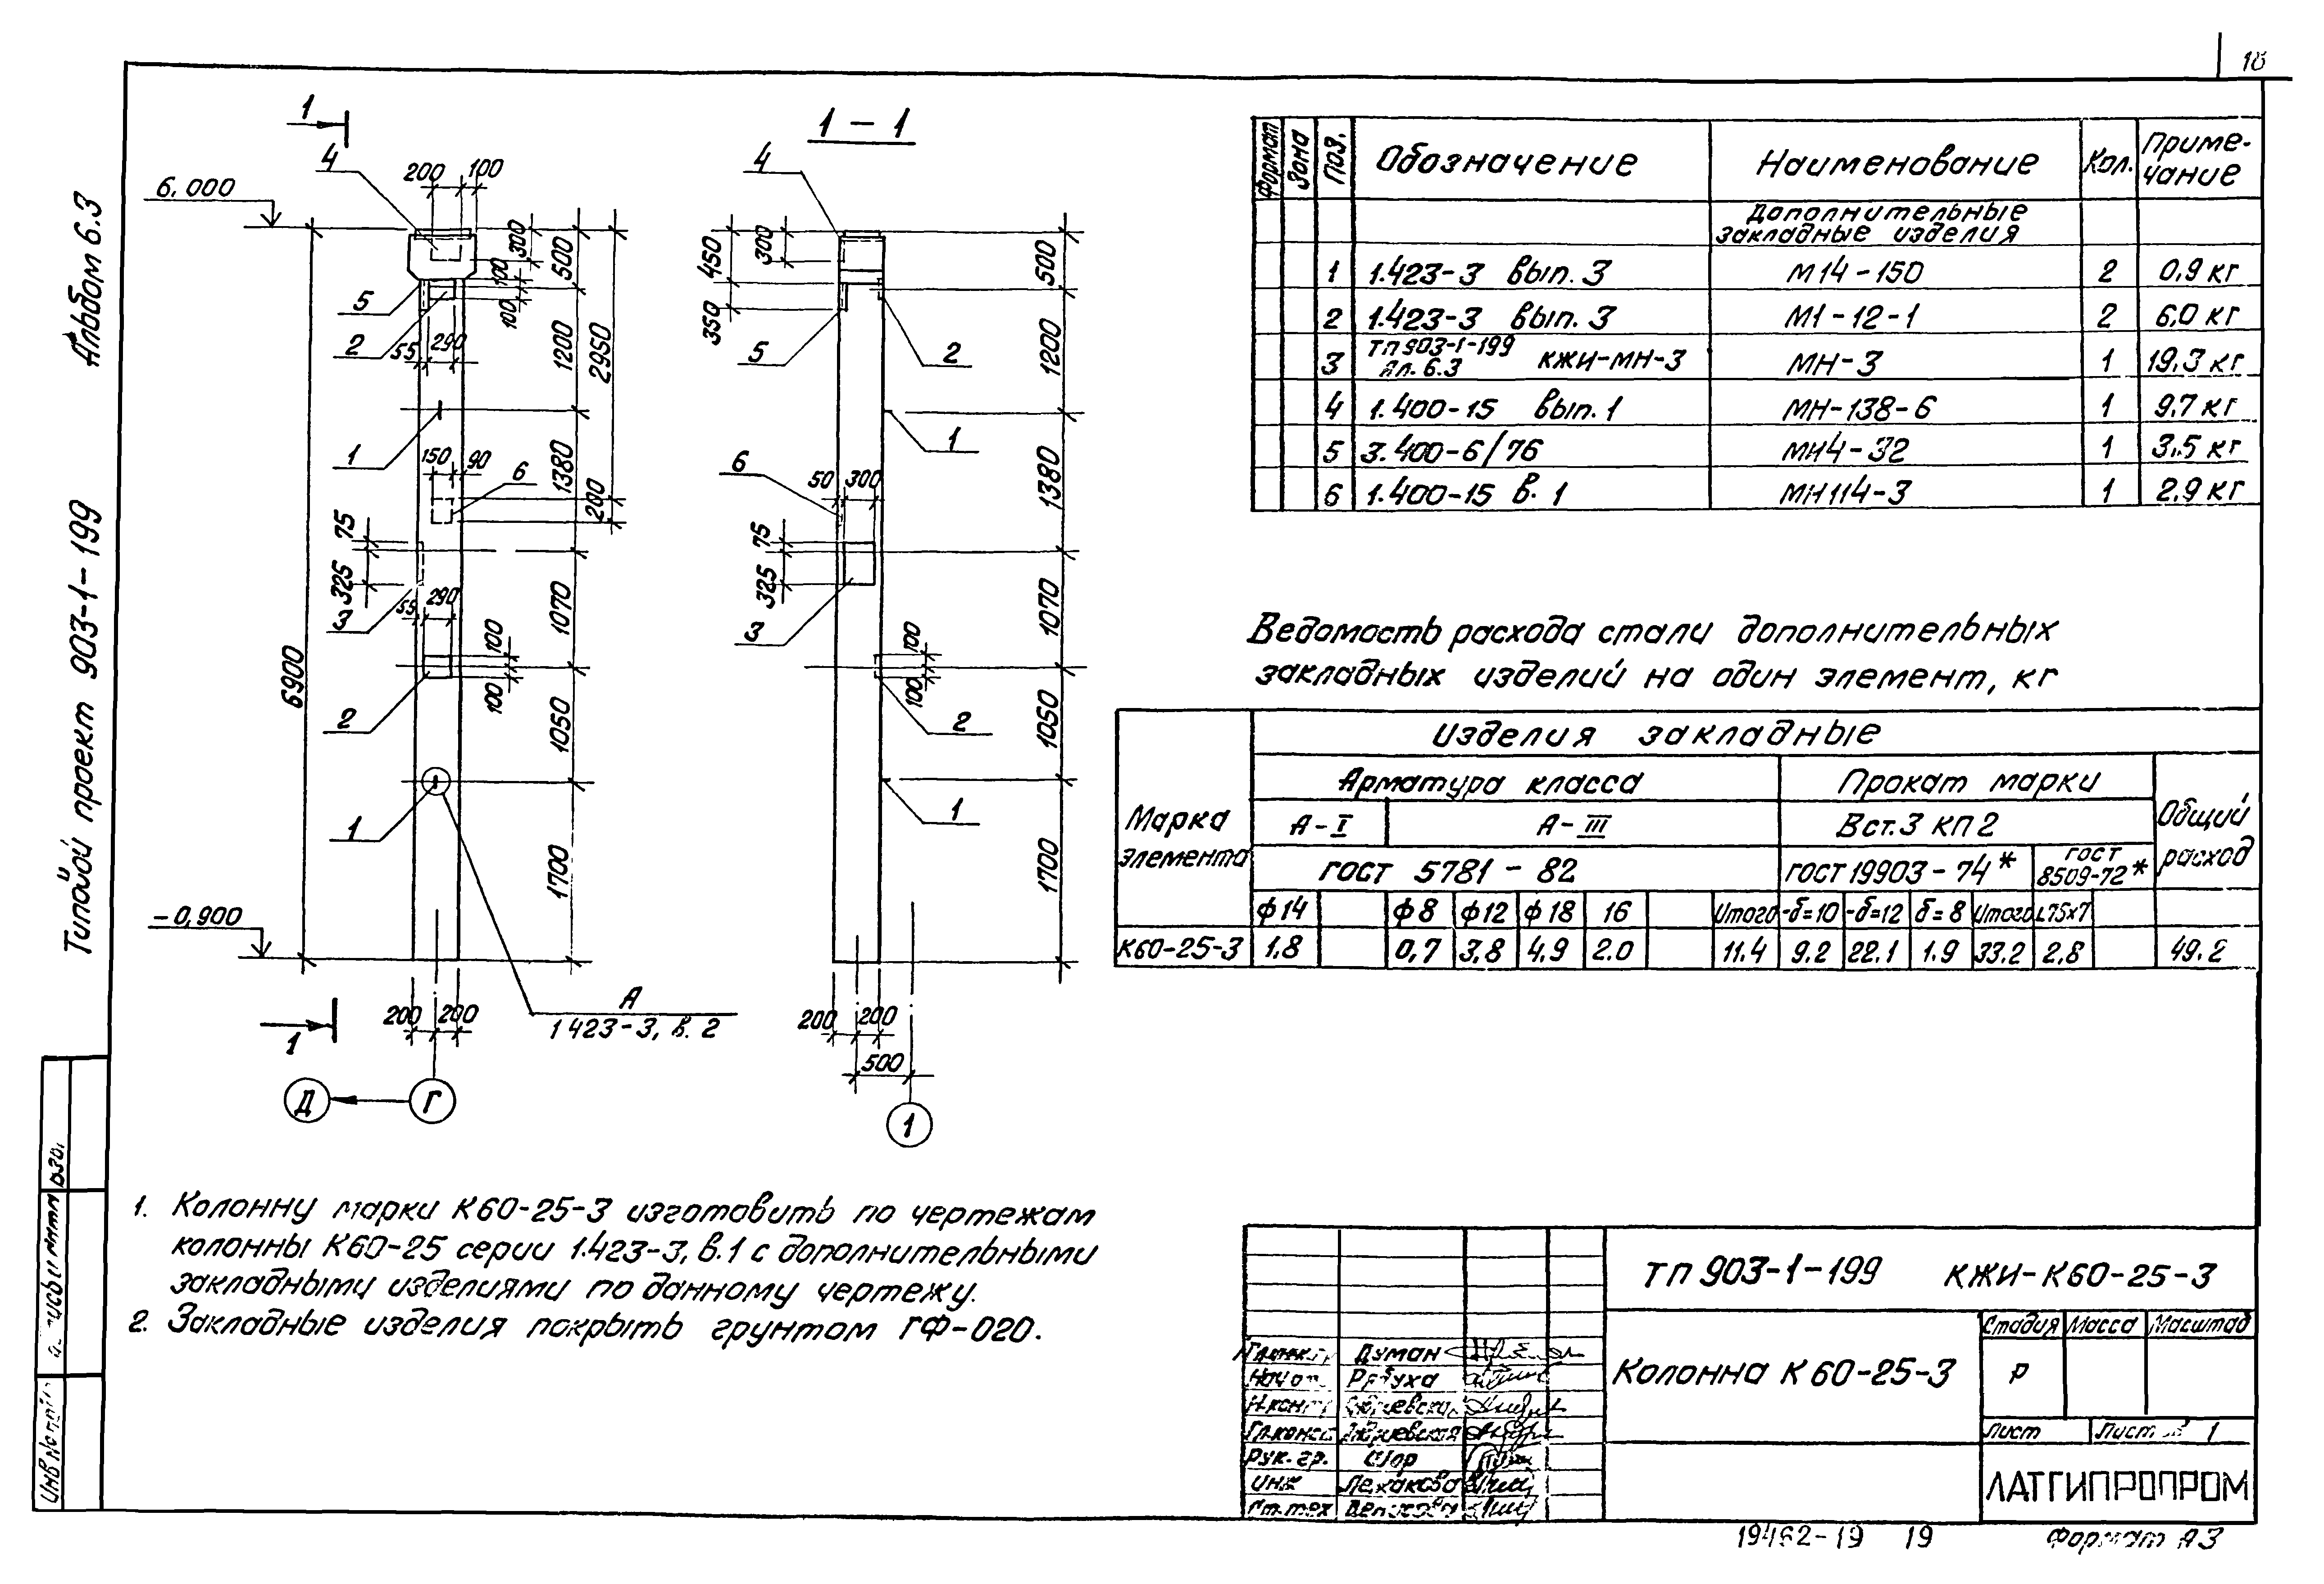 18
Альбом 6.3
Типовой проект 903-1-199
1
1 - 1
4
200
100
6,000
300
500
100
100
5
2
55
290
1200
2950
1
150
90
6
1380
200
75
325
55
290
3
100
100
1070
6900
2
1050
1
1700
-0,900
200
200
А
1 423-3, в. 2
1
Д
Г
4
450
300
500
350
5
2
1200
1
6
50
300
1380
75
325
3
100
100
1070
2
1050
1
1700
200
200
500
1
Формат
Зона
Поз.
Обозначение
Наименование
Кол.
Приме-
чание
Дополнительные
закладные изделия
1 1.423-3 вып. 3 М14-150 2 0,9 кг
2 1.423-3 вып. 3 М1-12-1 2 6,0 кг
3 ТП 903-1-199 Ал. 6.3 КЖИ-МН-3 МН-3 1 19,3 кг
4 1.400-15 вып. 1 МН-138-6 1 9,7 кг
5 3.400-6/76 МН4-32 1 3,5 кг
6 1.400-15 в. 1 МН114-3 1 2,9 кг
Ведомость расхода стали дополнительных
закладных изделий на один элемент, кг
Марка
элемента
Изделия закладные
Арматура класса
Прокат марки
Общий
расход
А-I
А-III
Вст.3 кп2
гост 5781-82
гост 19903-74*
гост
8509-72*
ф14 ф8 ф12 ф18 16 Итого -δ=10 -δ=12 δ=8 Итого L75х7
К60-25-3 1,8 0,7 3,8 4,9 2.0 11.4 9.2 22.1 1.9 33.2 2,8 49.2
1. Колонну марки К60-25-3 изготовить по чертежам
колонны К60-25 серии 1.423-3, в.1 с дополнительными
закладными изделиями по данному чертежу.
2. Закладные изделия покрыть грунтом ГФ-020.
ТП 903-1-199 КЖИ-К60-25-3
Колонна К60-25-3
Стадия Масса Масштаб
Р
Лист
1
ЛАТГИПРОПРОМ
Думан
Рук. гр. Шор
Инж
Ст.тех
Инв № подл
19462-19 19
Формат А3